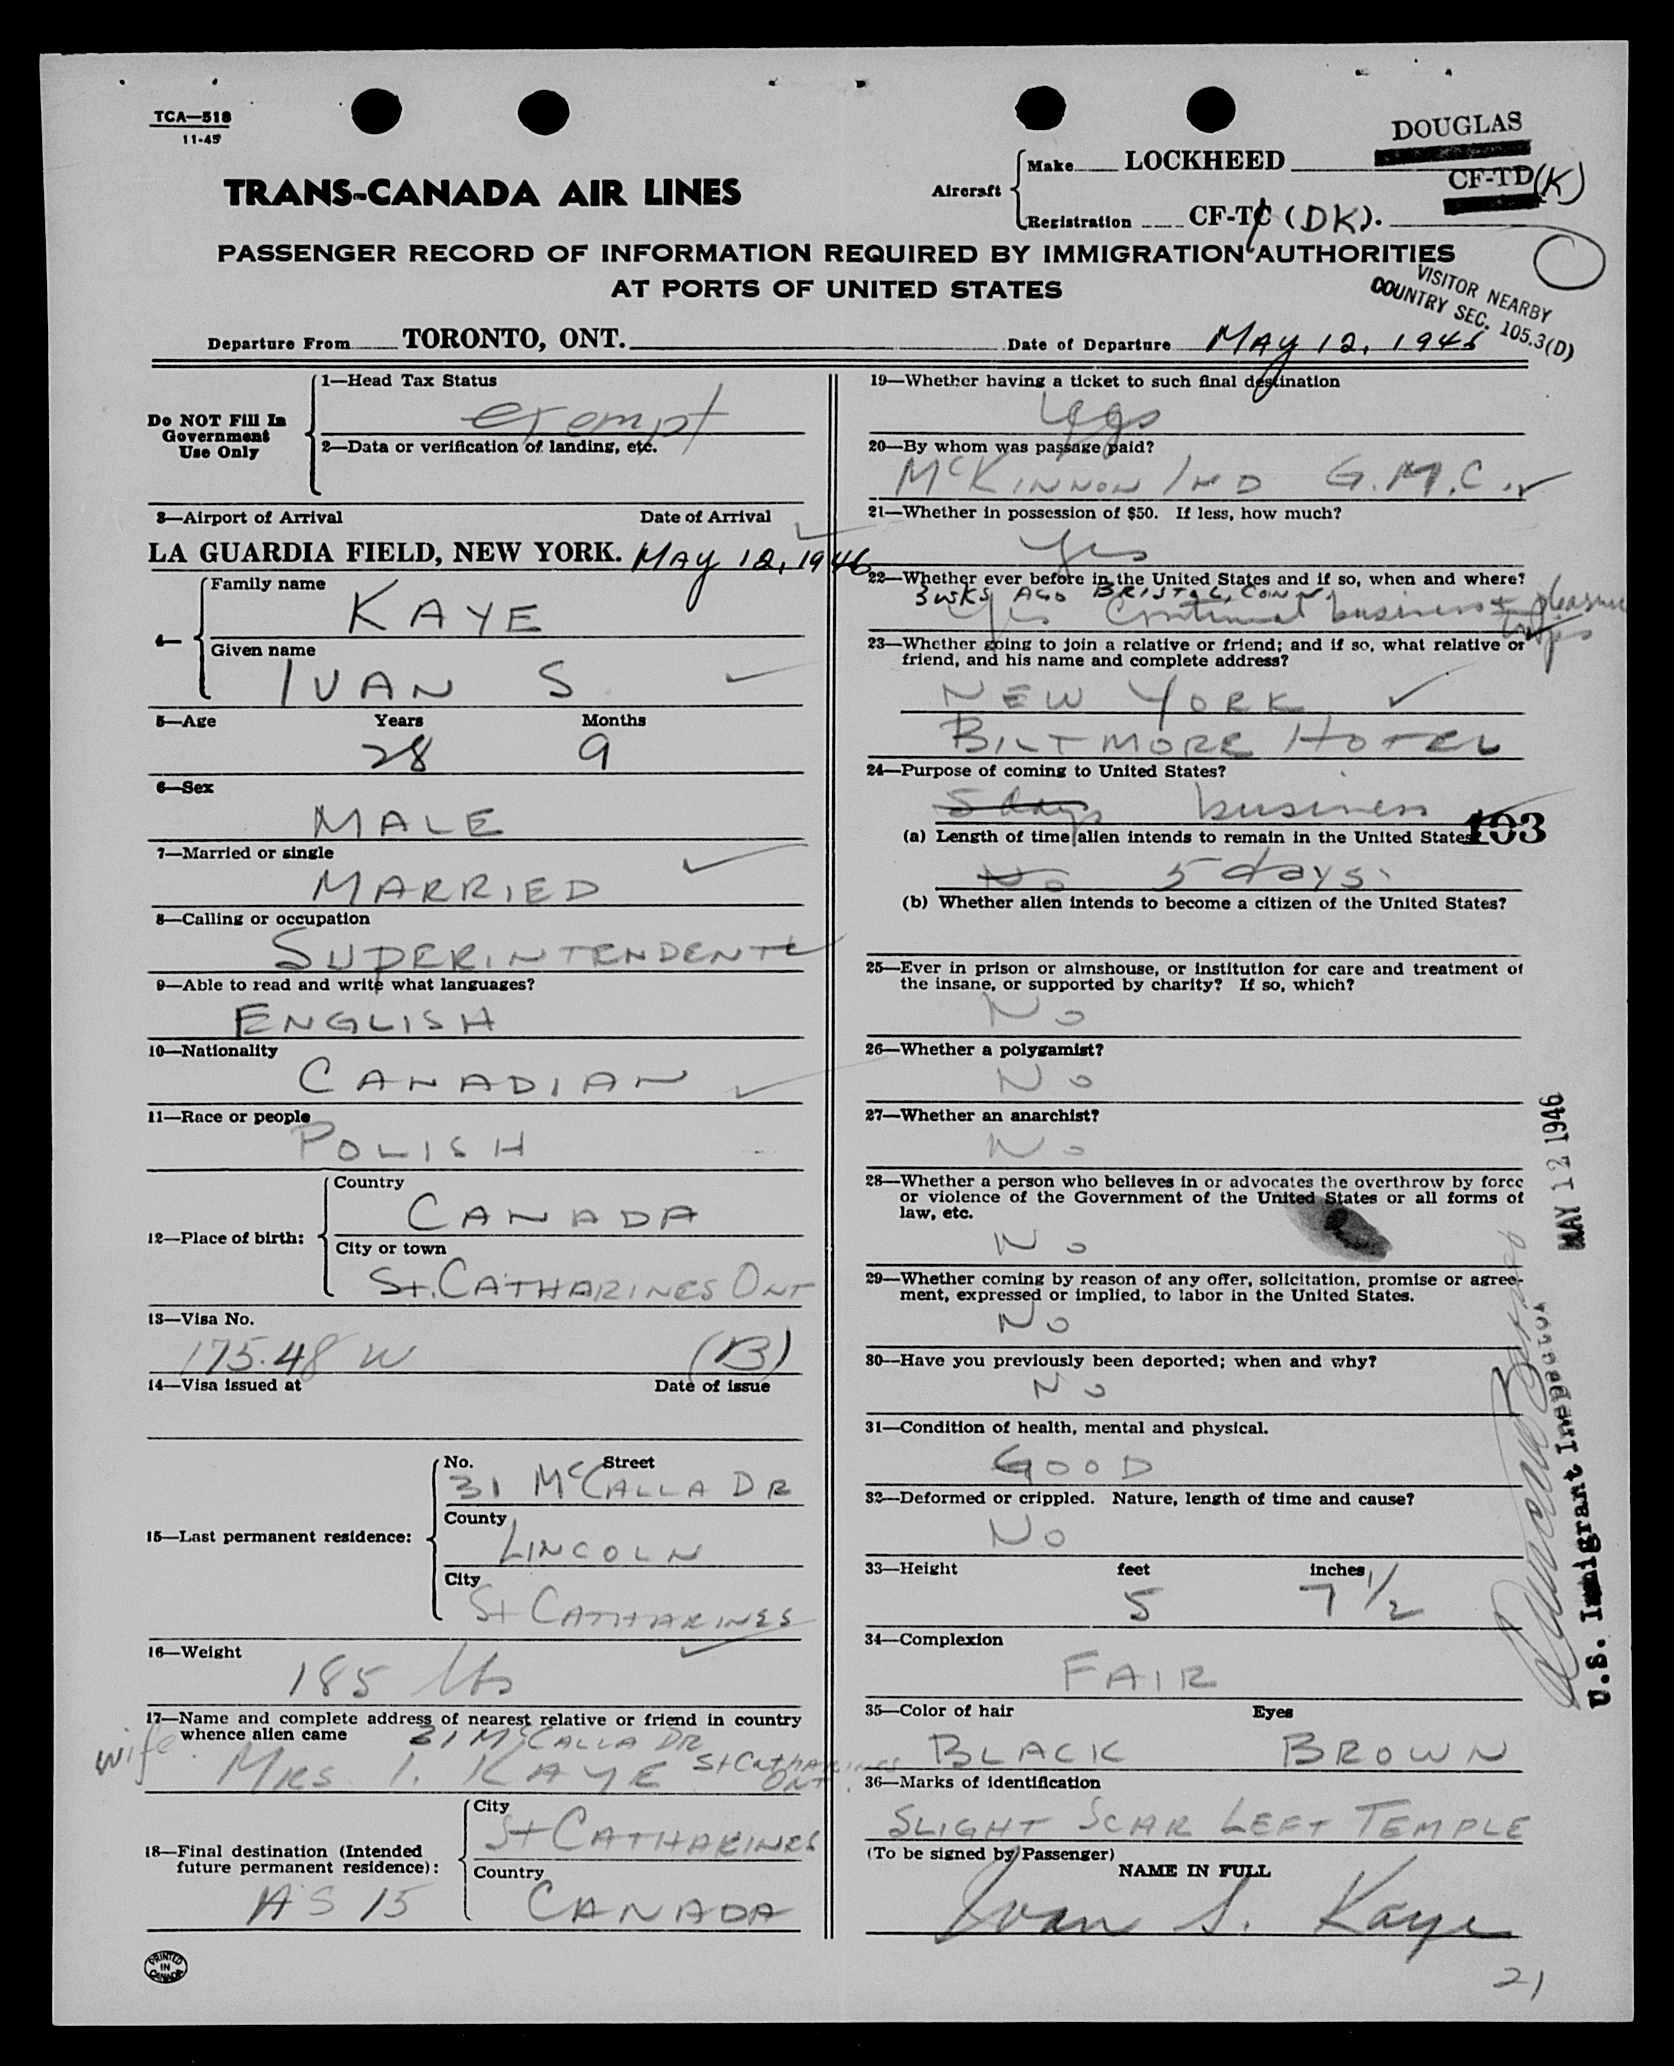 TCA—518
11-45
DOUGLAS
Aircraft
Make LOCKHEED
CF-TD (K)
Registration CF-TC (DK).
TRANS-CANADA AIR LINES
PASSENGER RECORD OF INFORMATION REQUIRED BY IMMIGRATION AUTHORITIES
AT PORTS OF UNITED STATES
VISITOR NEARBY
COUNTRY SEC. 105.3(D)
Departure From TORONTO, ONT. Date of Departure MAY 12, 1946
Do NOT Fill In
Government
Use Only
1—Head Tax Status
exempt
2—Data or verification of landing, etc.
3—Airport of Arrival Date of Arrival
LA GUARDIA FIELD, NEW YORK. MAY 12, 1946
4—
Family name
KAYE
Given name
IVAN S
5—Age Years Months
28 9
6—Sex
MALE
7—Married or single
MARRIED
8—Calling or occupation
SUPERINTENDENT
9—Able to read and write what languages?
ENGLISH
10—Nationality
CANADIAN
11—Race or people
POLISH
12—Place of birth:
Country
CANADA
City or town
ST. CATHARINES ONT
13—Visa No.
175.48 W (B)
14—Visa issued at Date of issue
15—Last permanent residence:
No. Street
31 McCALLA DR
County
LINCOLN
City
St CATHARINES
16—Weight
185 lbs
17—Name and complete address of nearest relative or friend in country
whence alien came 31 McCALLA DR
wife MRS. I. KAYE St CATHARINES
ONT.
18—Final destination (Intended
future permanent residence):
AS 15
City
St CATHARINES
Country
CANADA
PRINTED
IN
CANADA
19—Whether having a ticket to such final destination
yes
20—By whom was passage paid?
McKINNON IND G.M.C.
21—Whether in possession of $50. If less, how much?
Yes
22—Whether ever before in the United States and if so, when and where?
3 WKS AGO BRISTOL, CONN.
Yes Continual business & pleasure
trips
23—Whether going to join a relative or friend; and if so, what relative or
friend, and his name and complete address?
NEW YORK
BILTMORE HOTEL
24—Purpose of coming to United States?
5 days business
(a) Length of time alien intends to remain in the United States?
103
No 5 days.
(b) Whether alien intends to become a citizen of the United States?
25—Ever in prison or almshouse, or institution for care and treatment of
the insane, or supported by charity? If so, which?
No
26—Whether a polygamist?
No
27—Whether an anarchist?
No
28—Whether a person who believes in or advocates the overthrow by force
or violence of the Government of the United States or all forms of
law, etc.
No
29—Whether coming by reason of any offer, solicitation, promise or agree-
ment, expressed or implied, to labor in the United States.
No
30—Have you previously been deported; when and why?
No
31—Condition of health, mental and physical.
GOOD
32—Deformed or crippled. Nature, length of time and cause?
No
33—Height feet inches
5 7 1/2
34—Complexion
FAIR
35—Color of hair Eyes
BLACK BROWN
36—Marks of identification
SLIGHT SCAR LEFT TEMPLE
(To be signed by Passenger)
NAME IN FULL
Ivan S. Kaye
21
MAY 12 1946
U.S. Immigrant Inspector